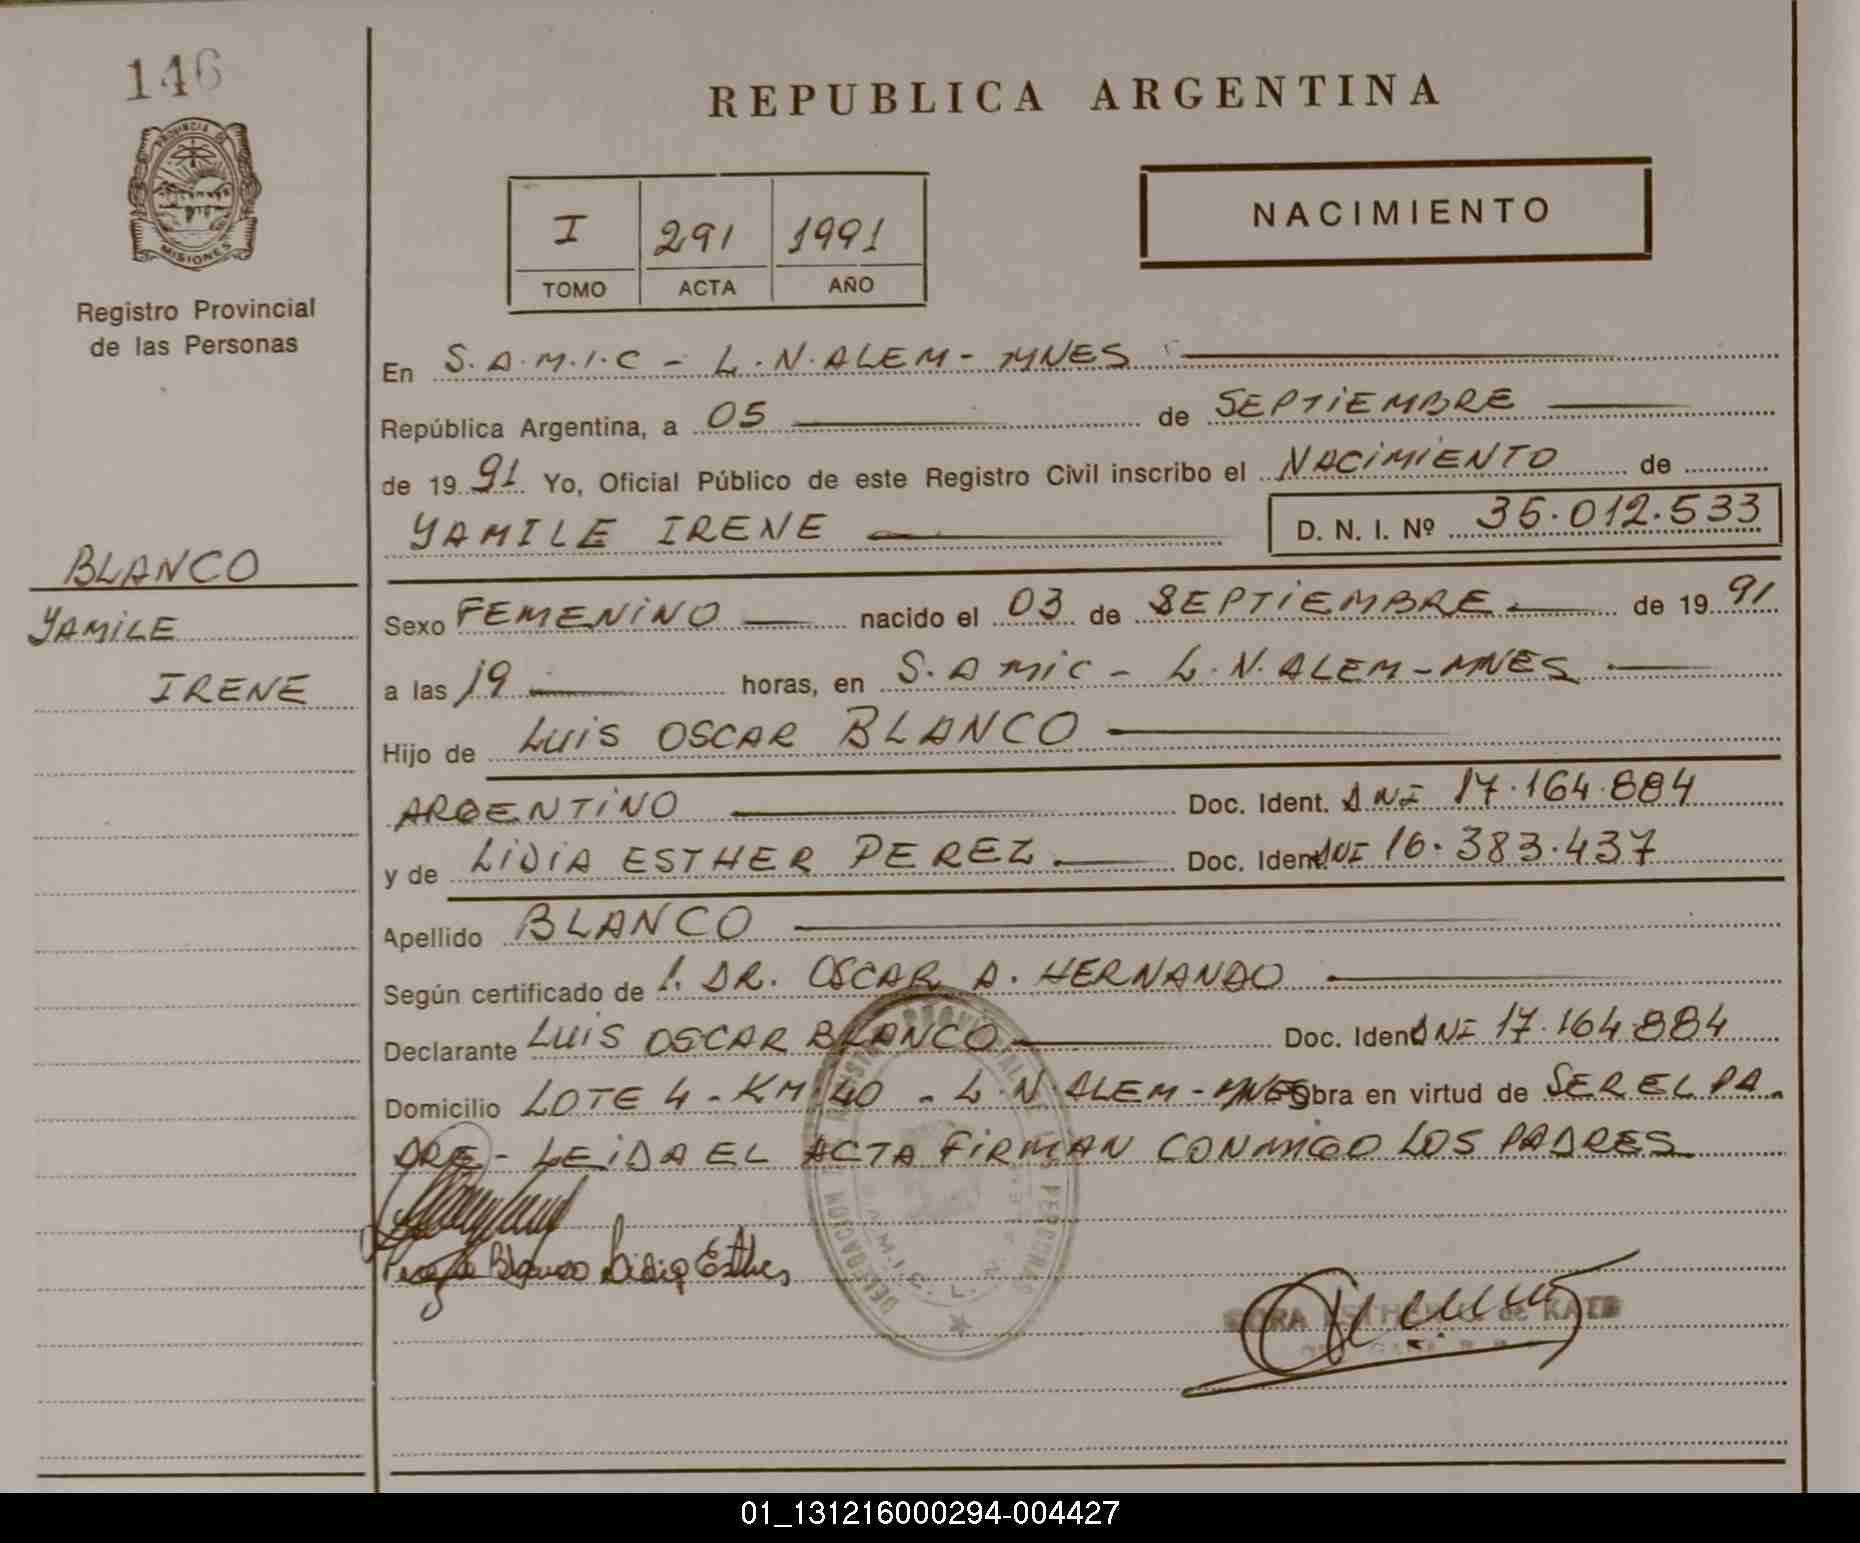 146
REPUBLICA ARGENTINA
PROVINCIA DE
MISIONES
Registro Provincial
de las Personas
I 291 1991
TOMO ACTA AÑO
NACIMIENTO
En S.A.M.I.C - L.N.ALEM - MNES
República Argentina, a 05 de SEPTIEMBRE
de 1991 Yo, Oficial Público de este Registro Civil inscribo el NACIMIENTO de
YAMILE IRENE D. N. I. Nº 36.012.533
BLANCO
YAMILE
IRENE
Sexo FEMENINO nacido el 03 de SEPTIEMBRE de 1991
a las 19 horas, en S.A MIC - L.N.ALEM-MNES
Hijo de LUIS OSCAR BLANCO
ARGENTINO Doc. Ident. DNI 17.164.884
y de LIDIA ESTHER PEREZ Doc. Ident. DNI 16.383.437
Apellido BLANCO
Según certificado de l. DR. OSCAR A. HERNANDO
Declarante LUIS OSCAR BLANCO Doc. Ident. DNI 17.164.884
Domicilio LOTE 4 - KM:40 - L.N.ALEM - MNES Obra en virtud de SER EL PA-
DRE - LEIDA EL ACTA FIRMAN CONMIGO LOS PADRES
Blanco Lidia Esther
DELEGACION PERSONAS
S.A.M.I.C. L. N.
de KATZ
01_131216000294-004427